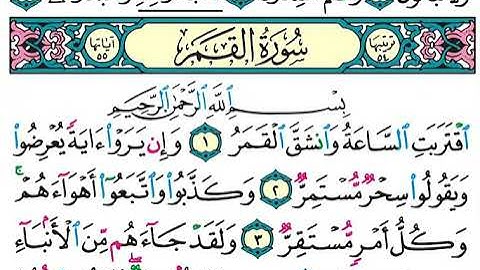 ترتيبها ٥٤ سُورَةُ القَمَرِ آيَاتُهَا ٥٥
بِسْمِ ٱللَّهِ ٱلرَّحْمَٰنِ ٱلرَّحِيمِ
ٱقْتَرَبَتِ ٱلسَّاعَةُ وَٱنشَقَّ ٱلْقَمَرُ ١ وَإِن يَرَوْا۟ ءَايَةً يُعْرِضُوا۟
وَيَقُولُوا۟ سِحْرٌ مُّسْتَمِرٌّ ٢ وَكَذَّبُوا۟ وَٱتَّبَعُوٓا۟ أَهْوَآءَهُمْ ۚ
وَكُلُّ أَمْرٍ مُّسْتَقِرٌّ ٣ وَلَقَدْ جَآءَهُم مِّنَ ٱلْأَنۢبَآءِ